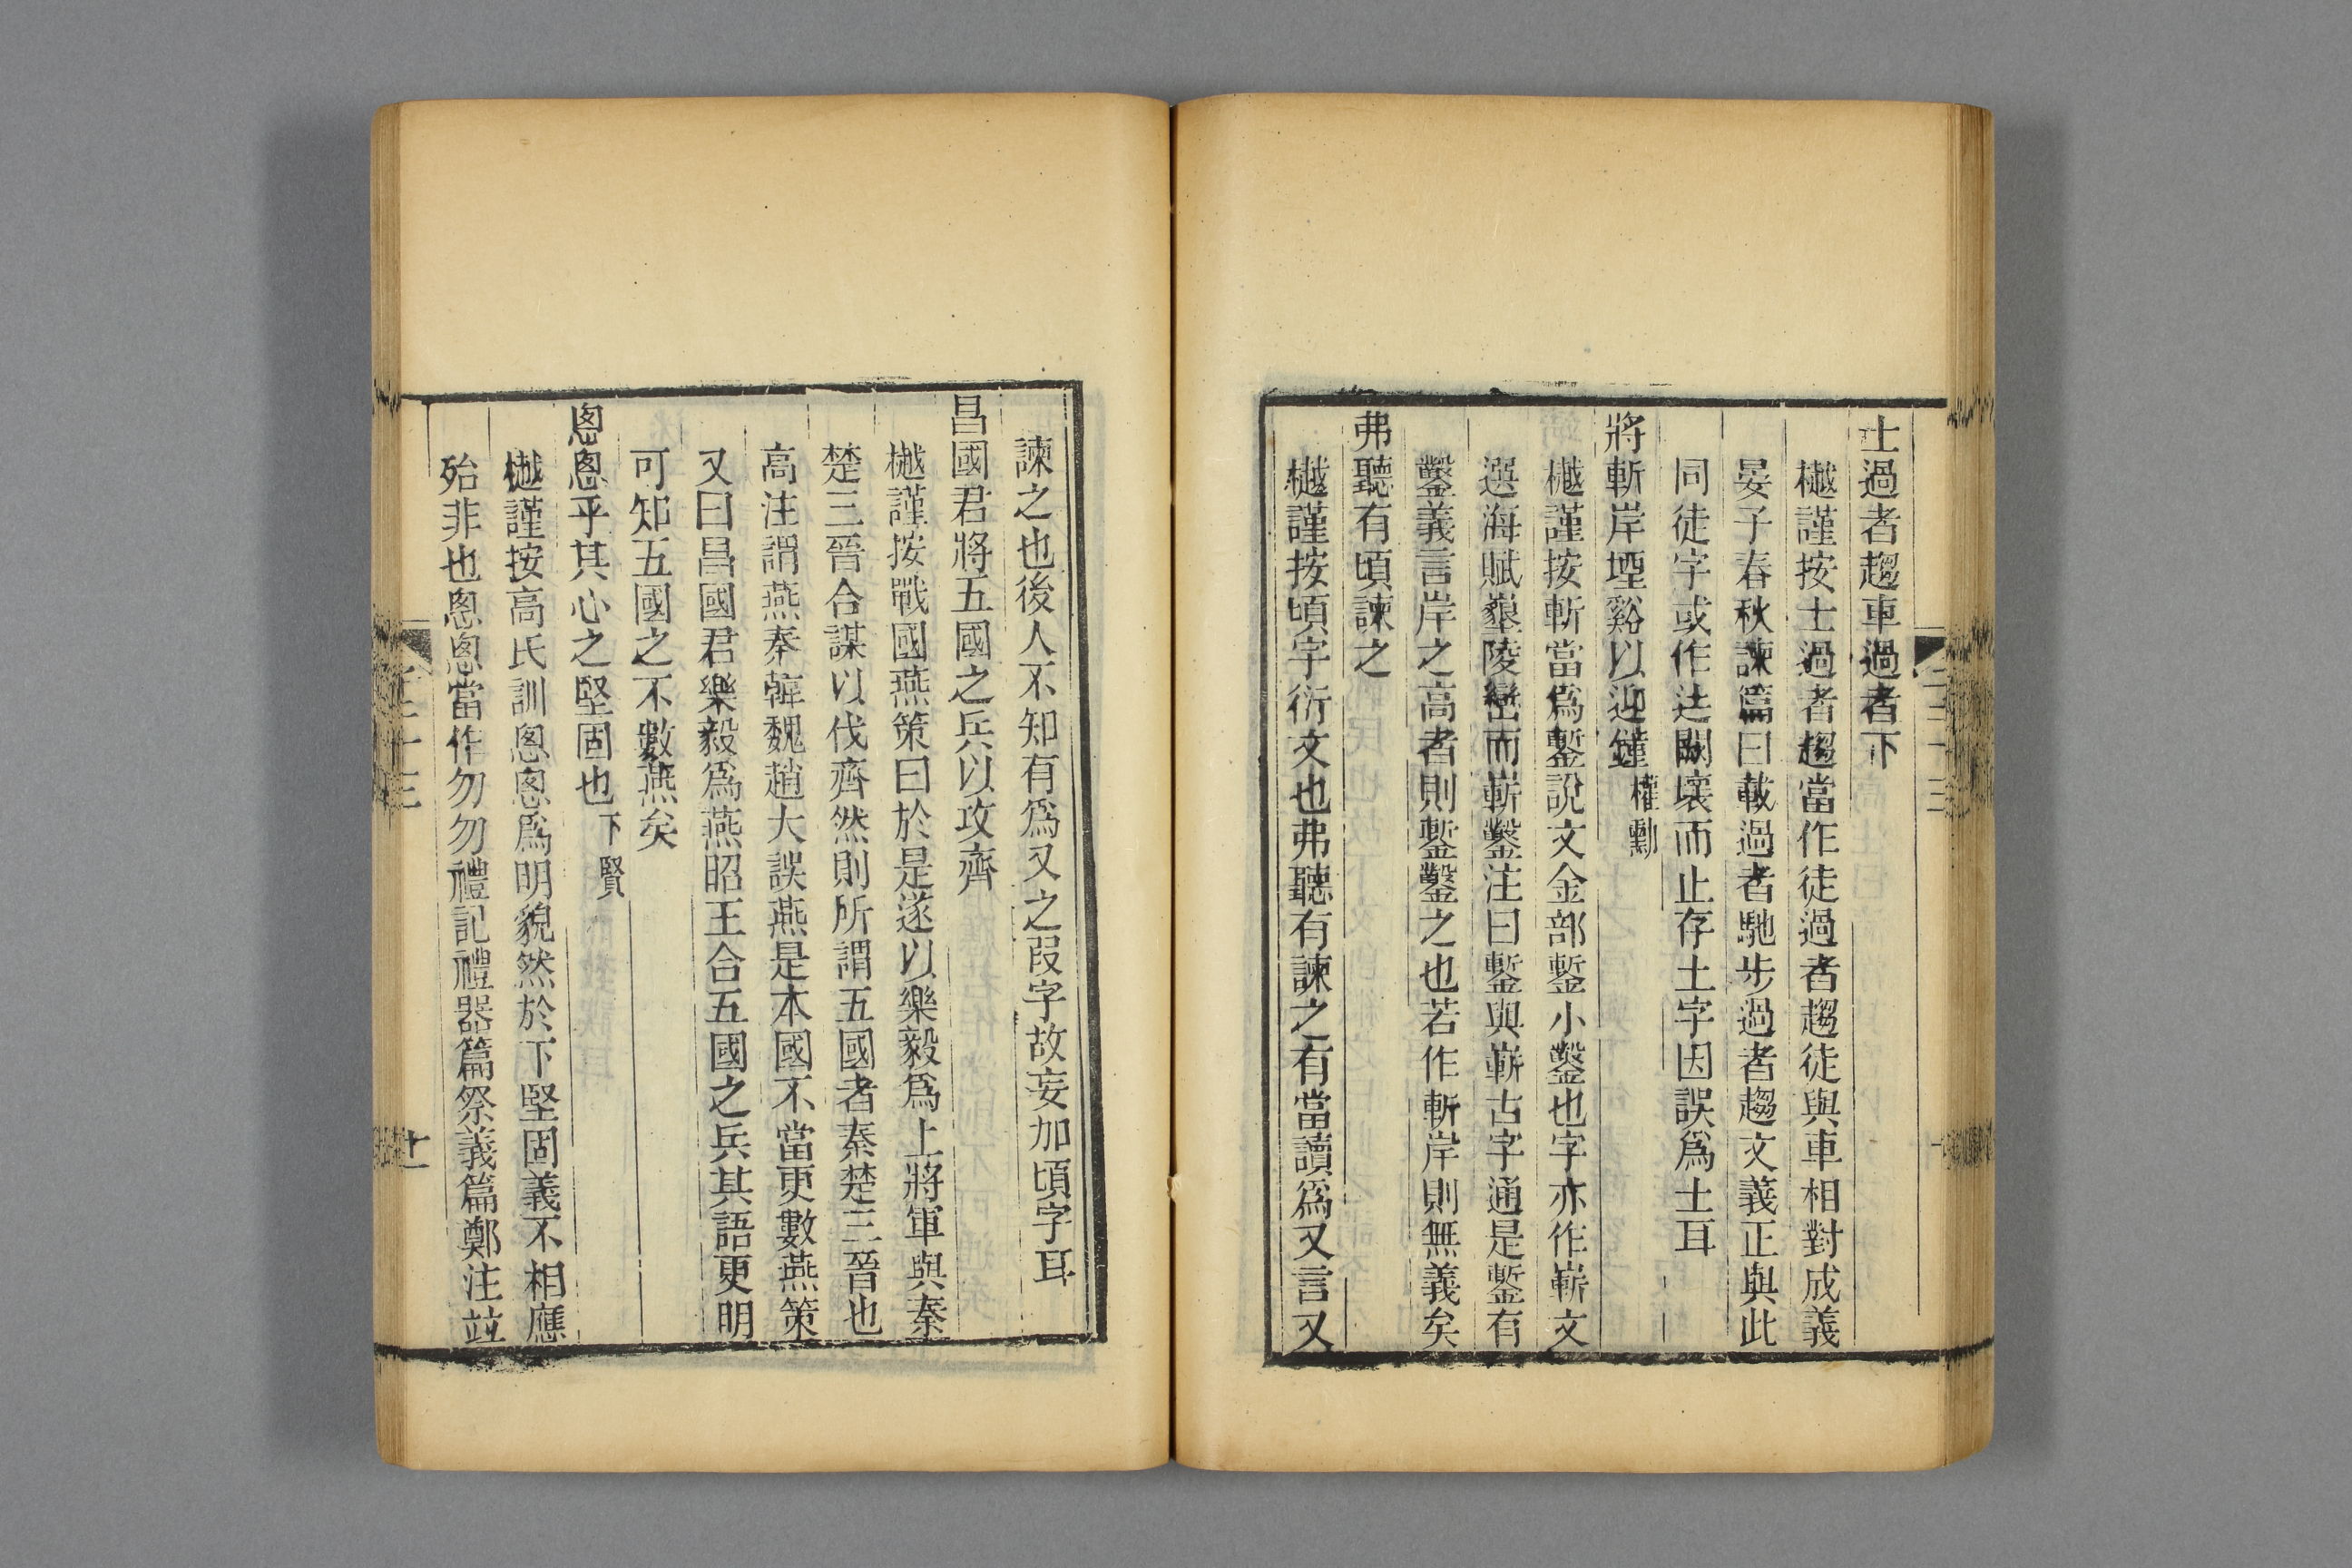 士過者趨車過者下
樾謹按士過者趨當作徒過者趨徒與車相對成義
晏子春秋諫篇曰載過者馳步過者趨文義正與此
同徒字或作𨑒闕壞而止存土字因誤爲士耳
將斬岸堙谿以迎鐘權勳
樾謹按斬當爲鏨說文金部鏨小鑿也字亦作嶄文
選海賦襲陵巒而嶄鑿注曰鏨與嶄古字通是鏨有
鑿義言岸之高者則鏨鑿之也若作斬岸則無義矣
弗聽有頃諫之
樾謹按頃字衍文也弗聽有諫之有當讀爲又言又
諫之也後人不知有爲又之叚字故妄加頃字耳
昌國君將五國之兵以攻齊
樾謹按戰國燕策曰於是遂以樂毅爲上將軍與秦
楚三晉合謀以伐齊然則所謂五國者秦楚三晉也
高注謂燕秦韓魏趙大誤燕是本國不當更數燕策
又曰昌國君樂毅爲燕昭王合五國之兵其語更明
可知五國之不數燕矣
悤悤乎其心之堅固也下賢
樾謹按高氏訓悤悤爲明貌然於下堅固義不相應
殆非也悤悤當作勿勿禮記禮器篇祭義篇鄭注竝